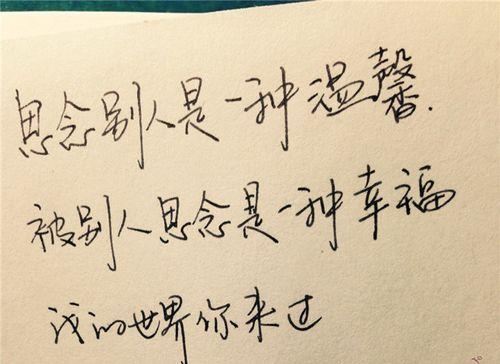 思念别人是一种温馨.
被别人思念是一种幸福
我的世界你来过